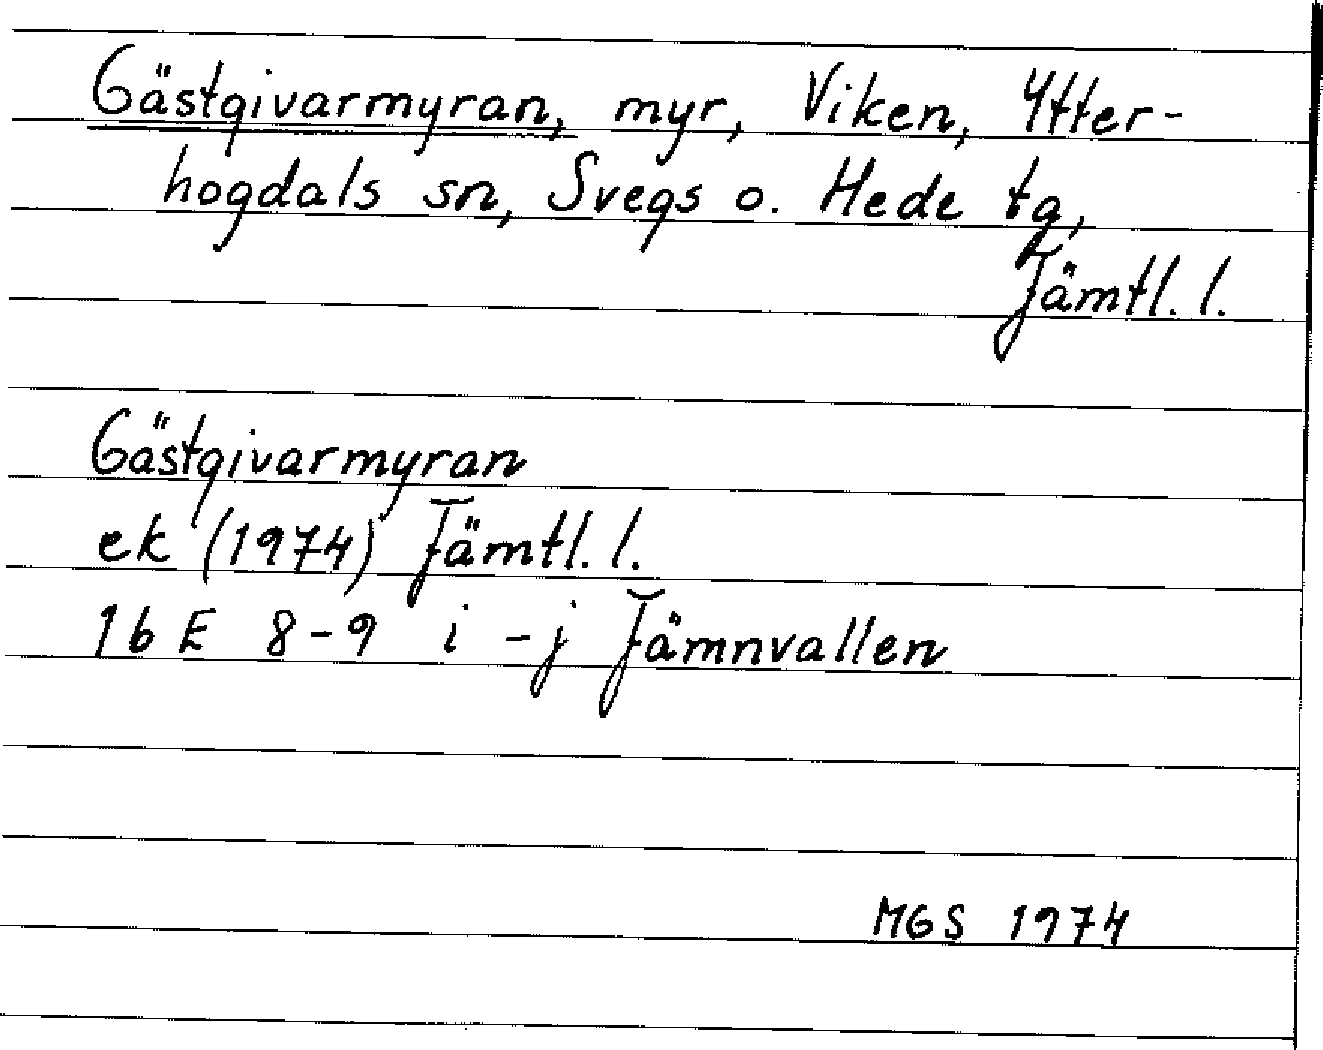 Gästgivarmyran, myr, Viken, Ytter-
hogdals sn, Svegs o. Hede tg,
Jämtl. l.
Gästgivarmyran
ek (1974) Jämtl. l.
16 E 8-9 i -j Jämnvallen
MGS 1974